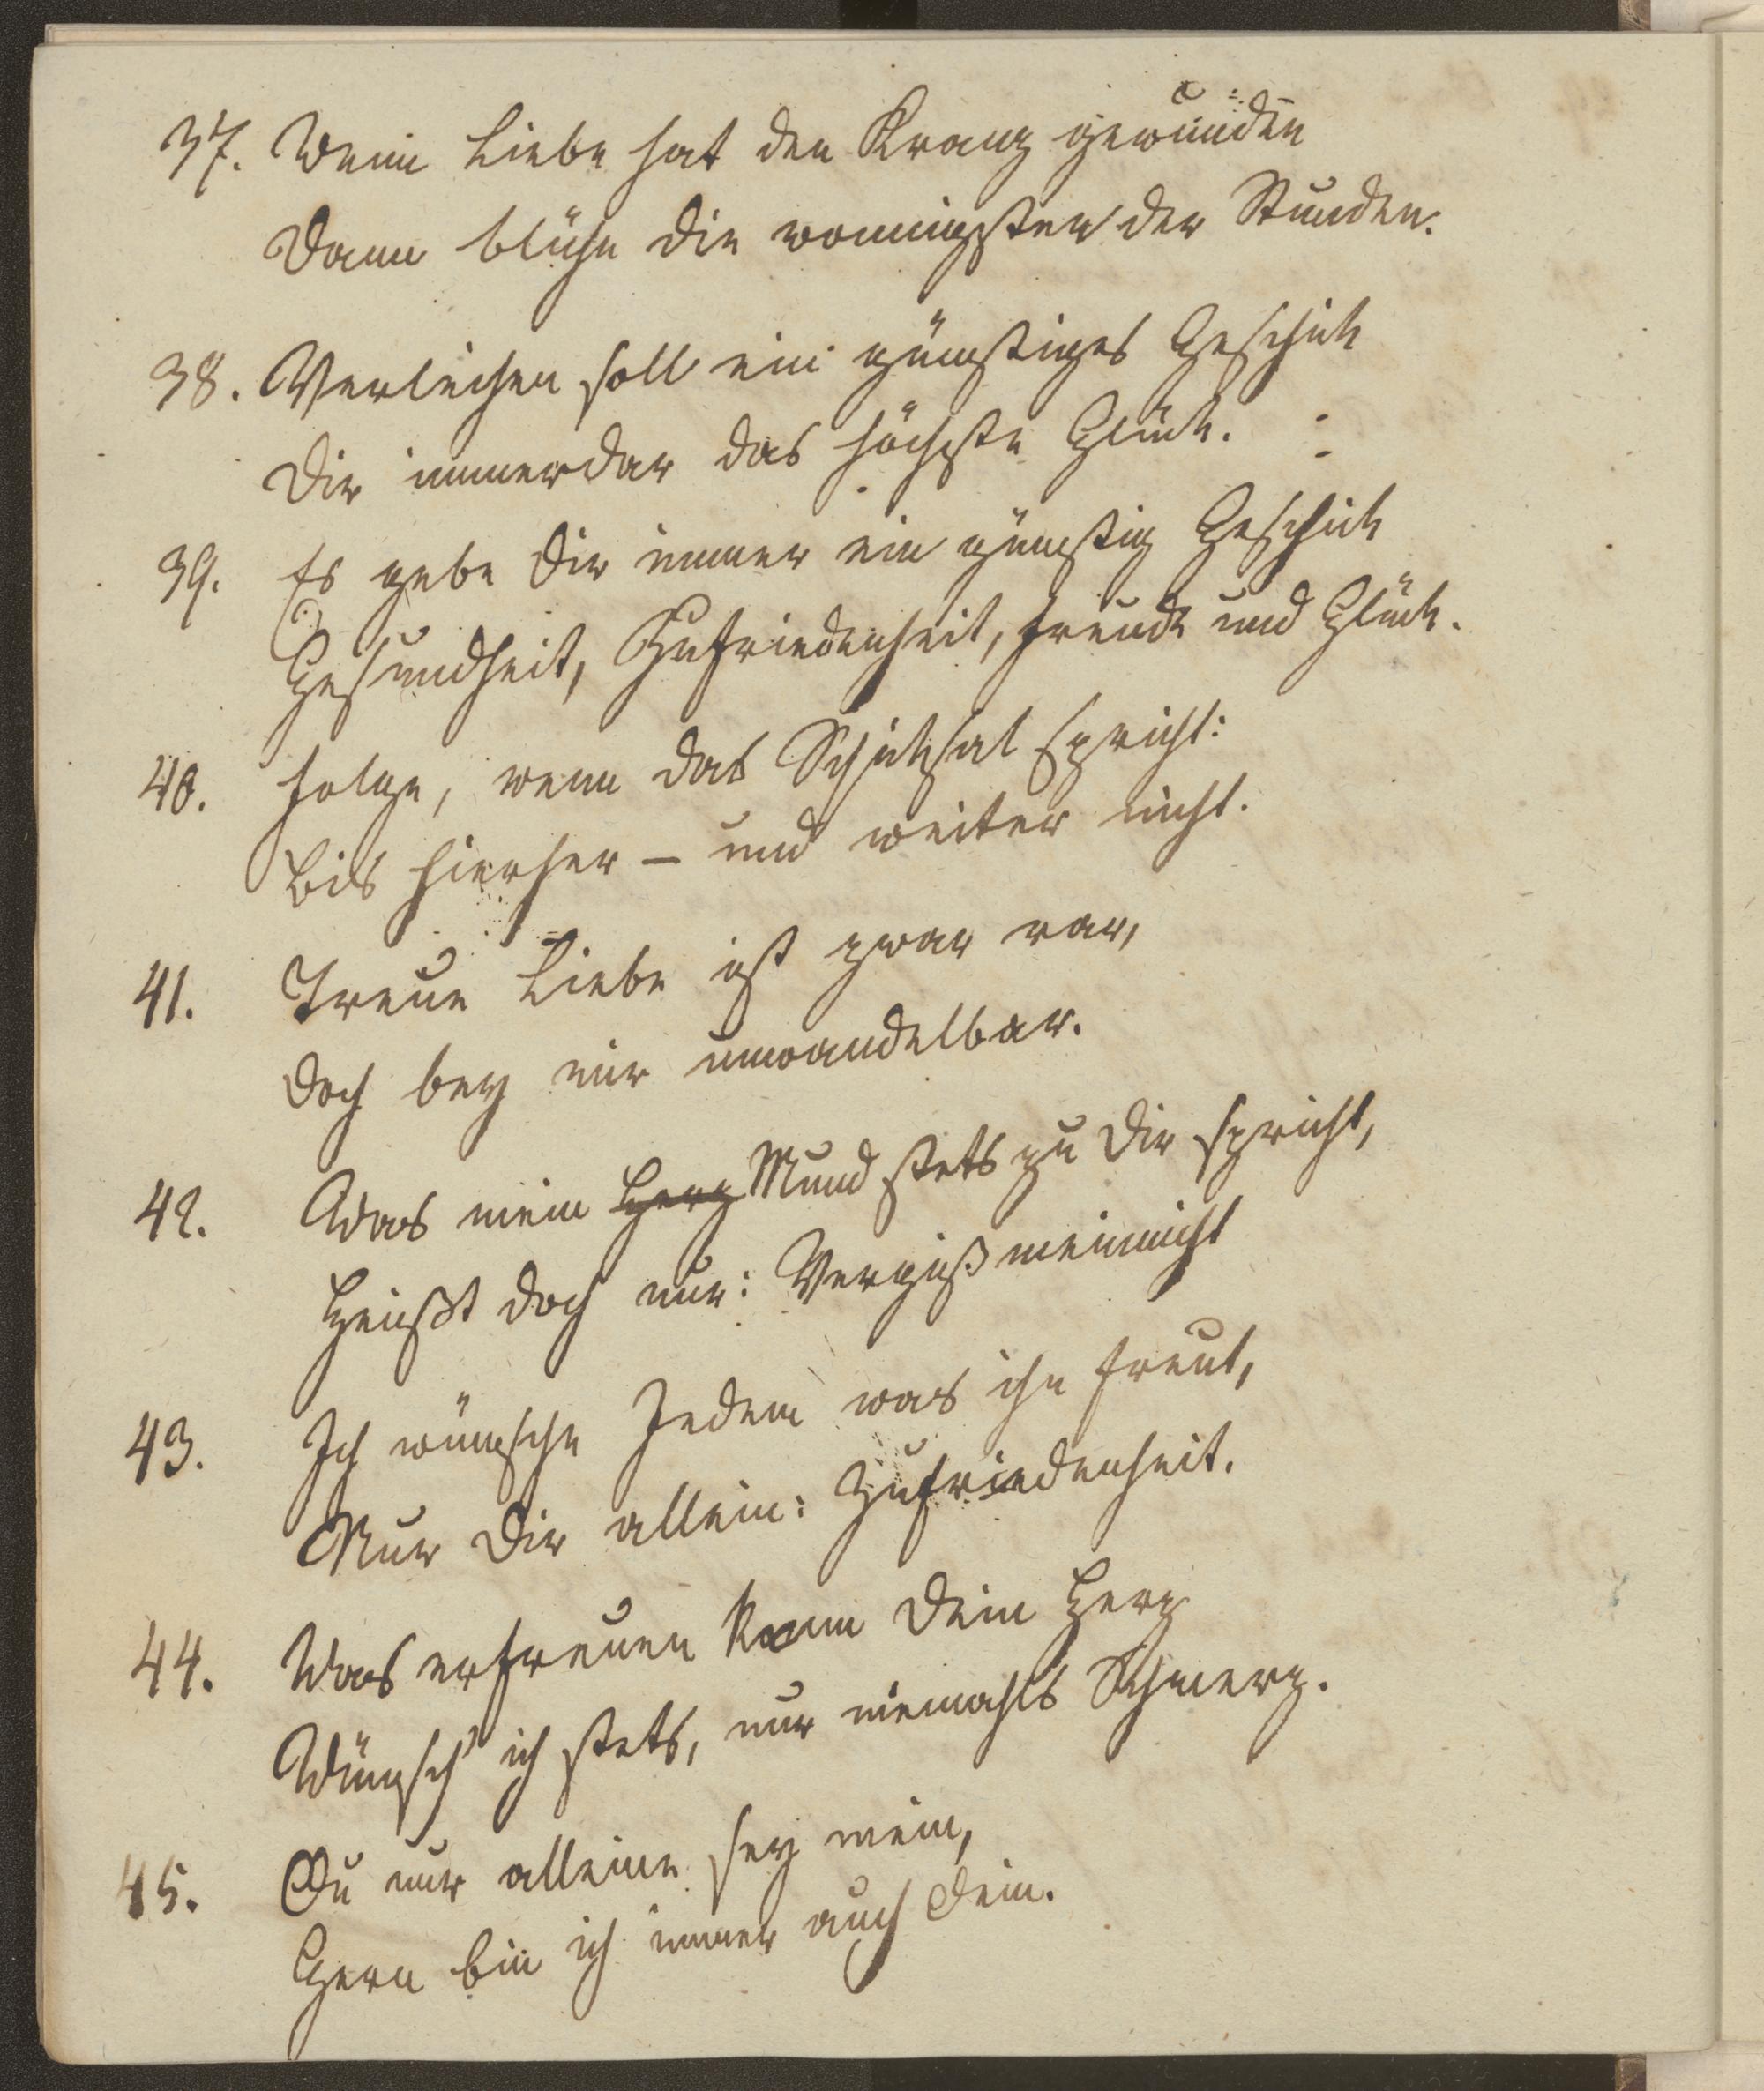 37. Wenn Liebe hat den Kranz gewunden
Dann blühn die wonnigsten der Stunden.
38. Verleihen soll ein günstiges Geschik
Dir immerdar das höchste Glük.
39. Es gebe Dir immer ein günstig Geschik
Gesundheit, Zufriedenheit, Freude und Glük.
40. Folge, wenn das Schiksal spricht:
Bis hierher – und weiter nicht.
41. Treue Liebe ist zwar rar,
Doch bey mir unwandelbar.
42. Was mein Herz Mund stets zu Dir spricht,
Heißt doch nur: Vergißmeinnicht
43. Ich wünsche Jedem was ihn freut,
Nur Dir allein: Zufriedenheit.
44. Was erfreuen kann Dein Herz
Wünsch' ich stets, nur niemahls Schmerz.
45. Du nur alleine sey mein,
Gern bin ich immer auch Dein.